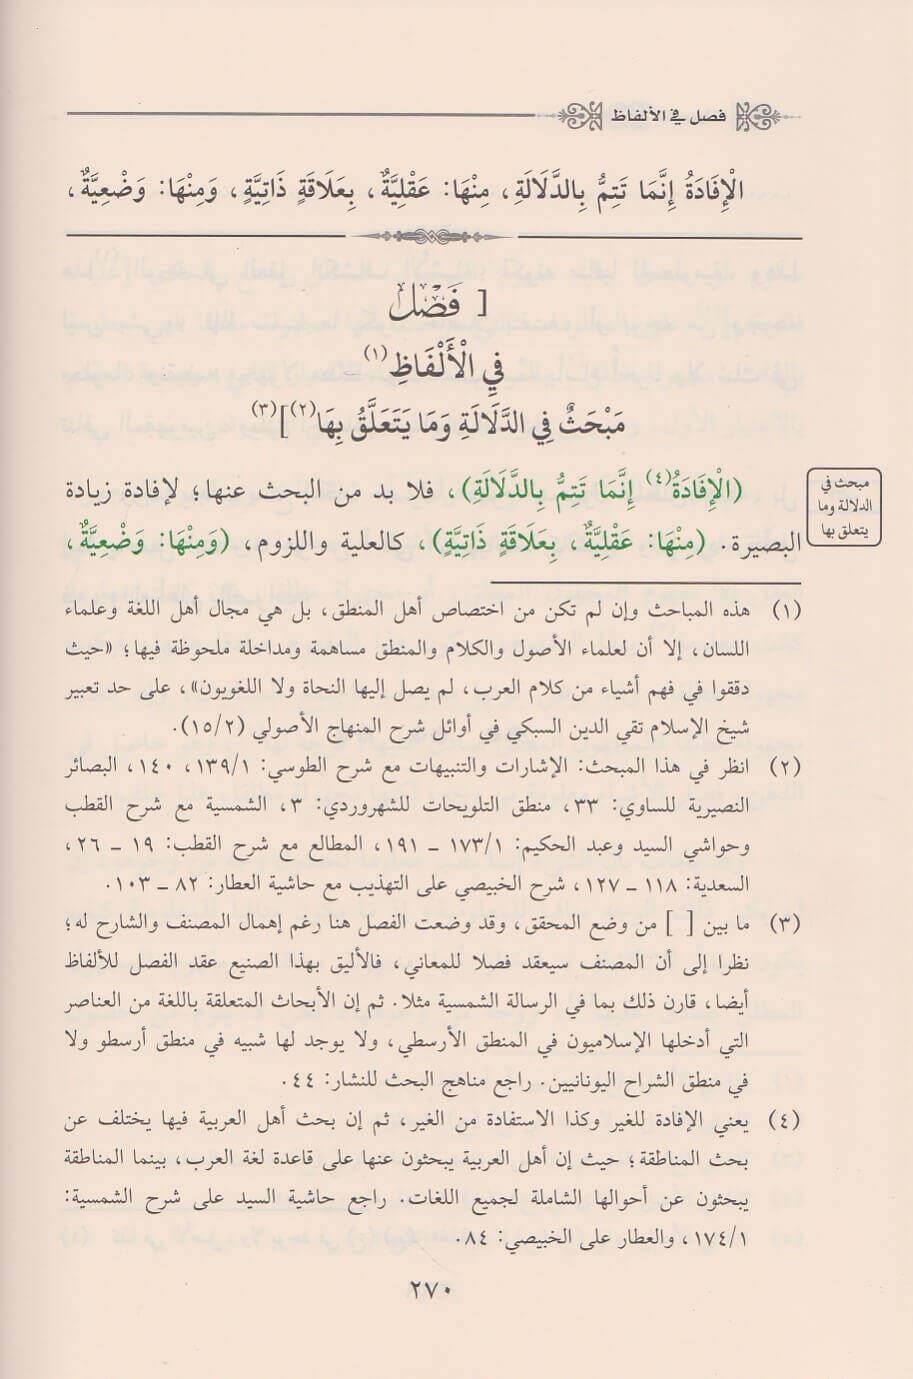 فصل في الألفاظ
الْإِفَادَةُ إِنَّمَا تَتِمُّ بِالدَّلَالَةِ، مِنْهَا: عَقْلِيَّةٌ، بِعَلَاقَةٍ ذَاتِيَّةٍ، وَمِنْهَا: وَضْعِيَّةٌ،
[ فَصْلٌ
فِي الْأَلْفَاظِ(١)
مَبْحَثٌ فِي الدَّلَالَةِ وَمَا يَتَعَلَّقُ بِهَا(٢)](٣)
(الْإِفَادَةُ(٤) إِنَّمَا تَتِمُّ بِالدَّلَالَةِ)، فلا بد من البحث عنها؛ لإفادة زيادة
البصيرة. (مِنْهَا: عَقْلِيَّةٌ، بِعَلَاقَةٍ ذَاتِيَّةٍ)، كالعلية واللزوم، (وَمِنْهَا: وَضْعِيَّةٌ،
مبحث في
الدلالة وما
يتعلق بها
(١) هذه المباحث وإن لم تكن من اختصاص أهل المنطق، بل هي مجال أهل اللغة وعلماء
اللسان، إلا أن لعلماء الأصول والكلام والمنطق مساهمة ومداخلة ملحوظة فيها؛ «حيث
دققوا في فهم أشياء من كلام العرب، لم يصل إليها النحاة ولا اللغويون»، على حد تعبير
شيخ الإسلام تقي الدين السبكي في أوائل شرح المنهاج الأصولي (١٥/٢).
(٢) انظر في هذا المبحث: الإشارات والتنبيهات مع شرح الطوسي: ١٣٩/١، ١٤٠، البصائر
النصيرية للساوي: ٣٣، منطق التلويحات للشهروردي: ٣، الشمسية مع شرح القطب
وحواشي السيد وعبد الحكيم: ١٧٣/١ ـ ١٩١، المطالع مع شرح القطب: ١٩ ـ ٢٦،
السعدية: ١١٨ ـ ١٢٧، شرح الخبيصي على التهذيب مع حاشية العطار: ٨٢ ـ ١٠٣.
(٣) ما بين [ ] من وضع المحقق، وقد وضعت الفصل هنا رغم إهمال المصنف والشارح له؛
نظرا إلى أن المصنف سيعقد فصلا للمعاني، فالأليق بهذا الصنيع عقد الفصل للألفاظ
أيضا، قارن ذلك بما في الرسالة الشمسية مثلا. ثم إن الأبحاث المتعلقة باللغة من العناصر
التي أدخلها الإسلاميون في المنطق الأرسطي، ولا يوجد لها شبيه في منطق أرسطو ولا
في منطق الشراح اليونانيين. راجع مناهج البحث للنشار: ٤٤.
(٤) يعني الإفادة للغير وكذا الاستفادة من الغير، ثم إن بحث أهل العربية فيها يختلف عن
بحث المناطقة؛ حيث إن أهل العربية يبحثون عنها على قاعدة لغة العرب، بينما المناطقة
يبحثون عن أحوالها الشاملة لجميع اللغات. راجع حاشية السيد على شرح الشمسية:
١٧٤/١، والعطار على الخبيصي: ٨٤.
٢٧٠